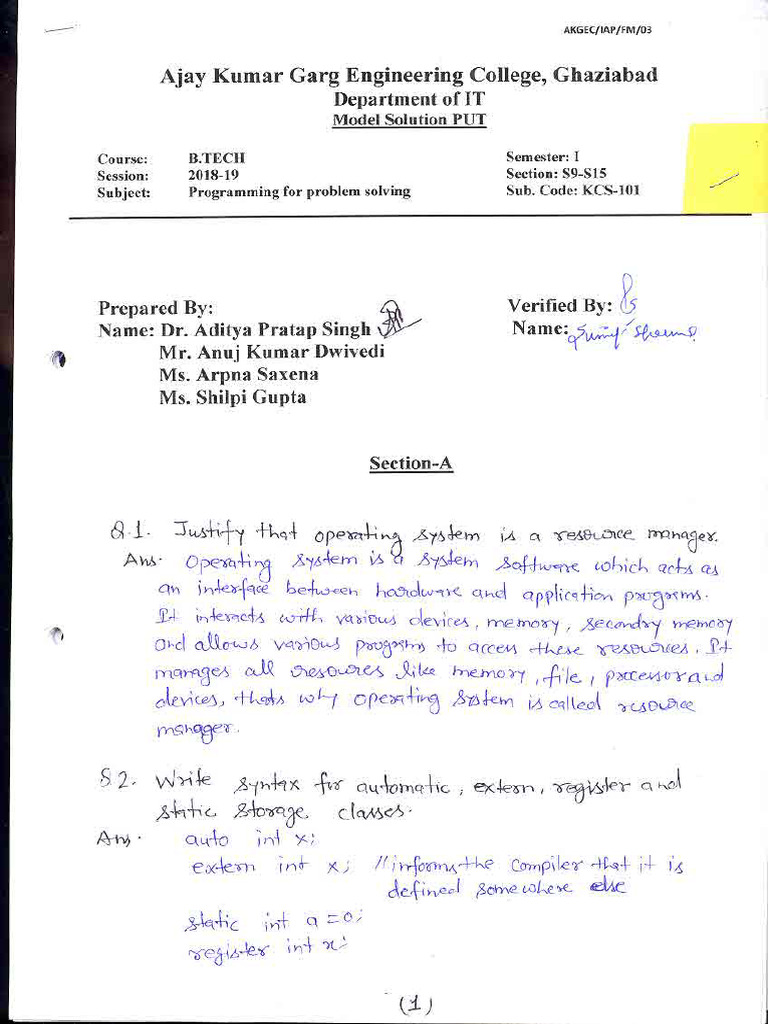 AKGEC/IAP/FM/03
Ajay Kumar Garg Engineering College, Ghaziabad
Department of IT
Model Solution PUT
Course: B.TECH Semester: I
Session: 2018-19 Section: S9-S15
Subject: Programming for problem solving Sub. Code: KCS-101
Prepared By: Verified By:
Name: Dr. Aditya Pratap Singh Name:
Mr. Anuj Kumar Dwivedi
Ms. Arpna Saxena
Ms. Shilpi Gupta
Section-A
Q.1. Justify that operating system is a resource manager.
Ans. Operating system is a system software which acts as
an interface between hardware and application programs.
It interacts with various devices, memory, secondry memory
and allows various programs to access these resources. It
manages all resources like memory, file, processor and
devices, thats why operating system is called resource
manager.
Q2. Write syntax for automatic, extern, register and
static storage classes.
Ans. auto int x;
extern int x; //informs the compiler that it is
defined somewhere else
static int a=0;
register int x;
(1)